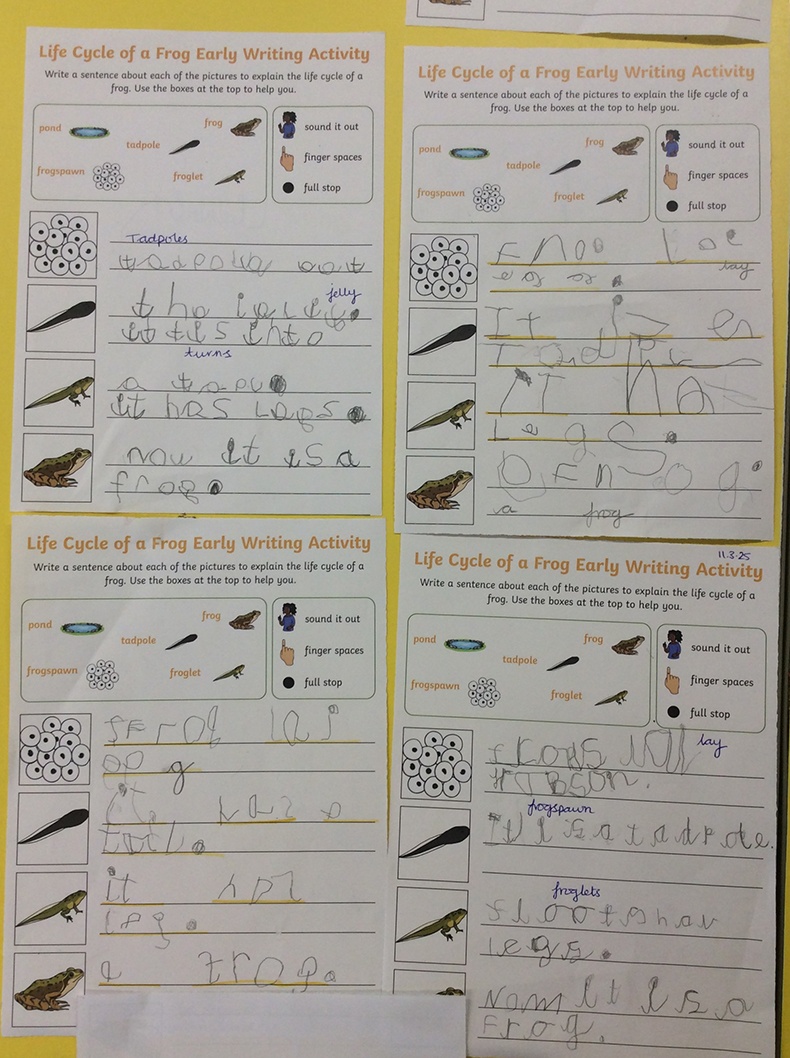 Life Cycle of a Frog Early Writing Activity
Write a sentence about each of the pictures to explain the life cycle of a
frog. Use the boxes at the top to help you.
pond
tadpole
frog
frogspawn
froglet
sound it out
finger spaces
full stop
Tadpoles
jelly
it tis into
turns
a
it has Legs.
now it is a
frog.
Life Cycle of a Frog Early Writing Activity
Write a sentence about each of the pictures to explain the life cycle of a
frog. Use the boxes at the top to help you.
pond
tadpole
frog
frogspawn
froglet
sound it out
finger spaces
full stop
lay
It is
IT has
Legs.
a frog
Life Cycle of a Frog Early Writing Activity
Write a sentence about each of the pictures to explain the life cycle of a
frog. Use the boxes at the top to help you.
pond
tadpole
frog
frogspawn
froglet
sound it out
finger spaces
full stop
it
leg.
a frog.
11.3.25
Life Cycle of a Frog Early Writing Activity
Write a sentence about each of the pictures to explain the life cycle of a
frog. Use the boxes at the top to help you.
pond
tadpole
frog
frogspawn
froglet
sound it out
finger spaces
full stop
lay
frogspawn
It is a
froglets
legs.
it is a
frog.